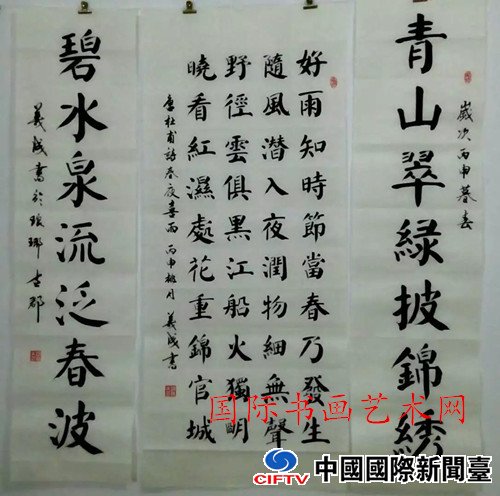 青山翠緑披錦綉
歲次丙申暮春
好雨知時節當春乃發生
隨風潛入夜潤物細無聲
野徑雲俱黑江船火獨明
曉看紅濕處花重錦官城
唐杜甫詩春夜喜雨 丙申桃月 義成書
碧水泉流泛春波
義成書於琅琊古郡
国际书画艺术网
CIFTV
中國國際新聞臺